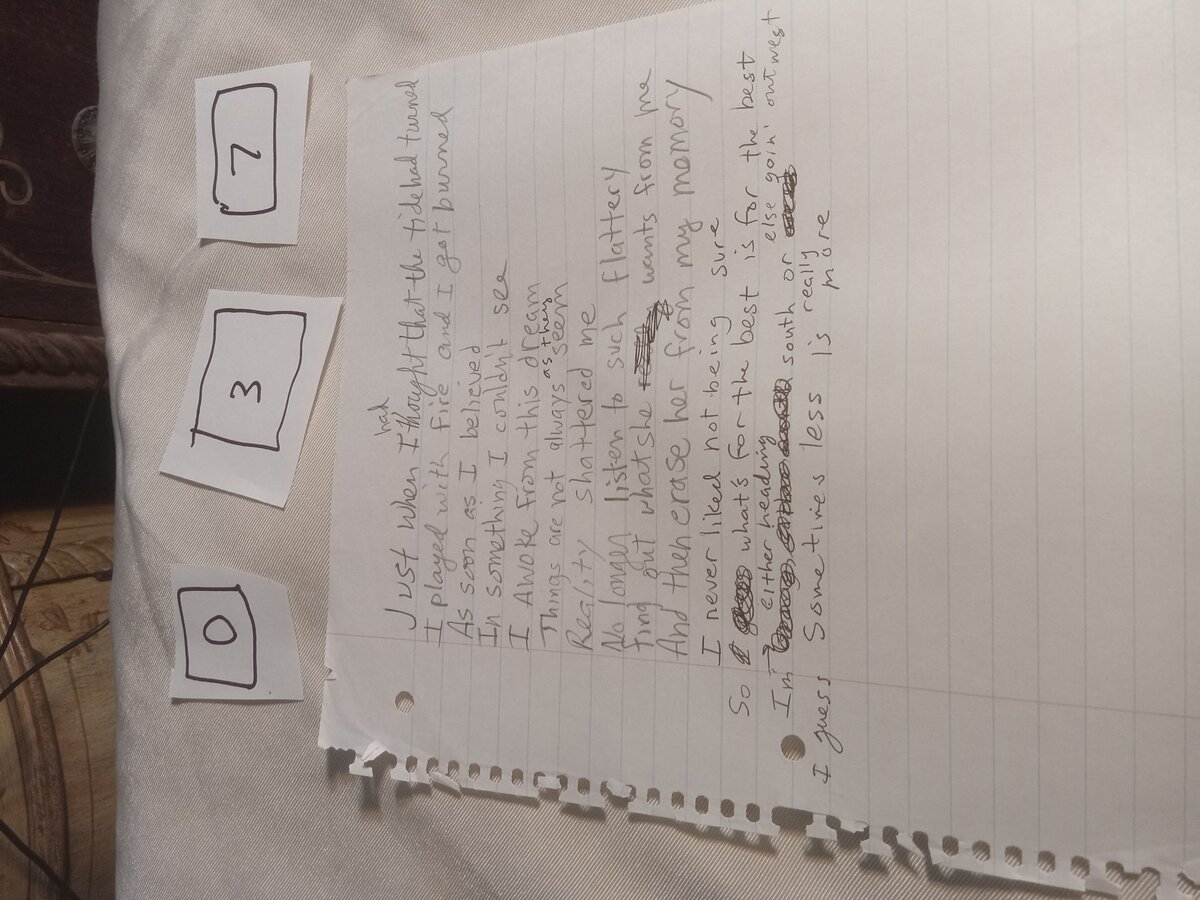 0 3 7
Just when I had thought that the tide had turned
I played with fire and I got burned
As soon as I believed
In something I couldn't see
I Awoke from this dream
Things are not always as they seem
Reality shattered me
No longer listen to such flattery
find out what she wants from me
And then erase her from my memory
I never liked not being sure
So what's for the best is for the best
I'm either heading south or else goin' out west
I guess Sometimes less is really more